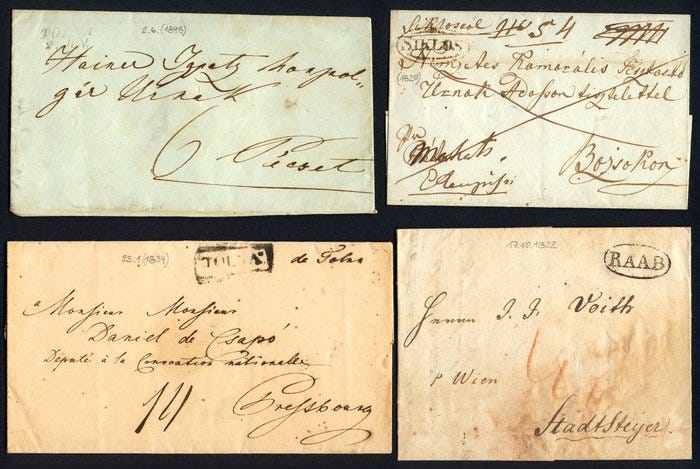 TOLNA
2.6.(1848)
Hainer Ignatz honpol„
gár Urnak
Pécset
Siklosról N 54
SIKLOS
(1820)
Urnak adasson tisztelettel
per
Mohats
Bojsokon
23.1.(1834)
TOLNA
de Tolna
a Monsieur Monsieur
Daniel de Csapó
Député à la Convention nationalle
Pressbourg
17.10.1822
RAAB
Herrn J. J. Voith
p Wien
StadtSteyer.